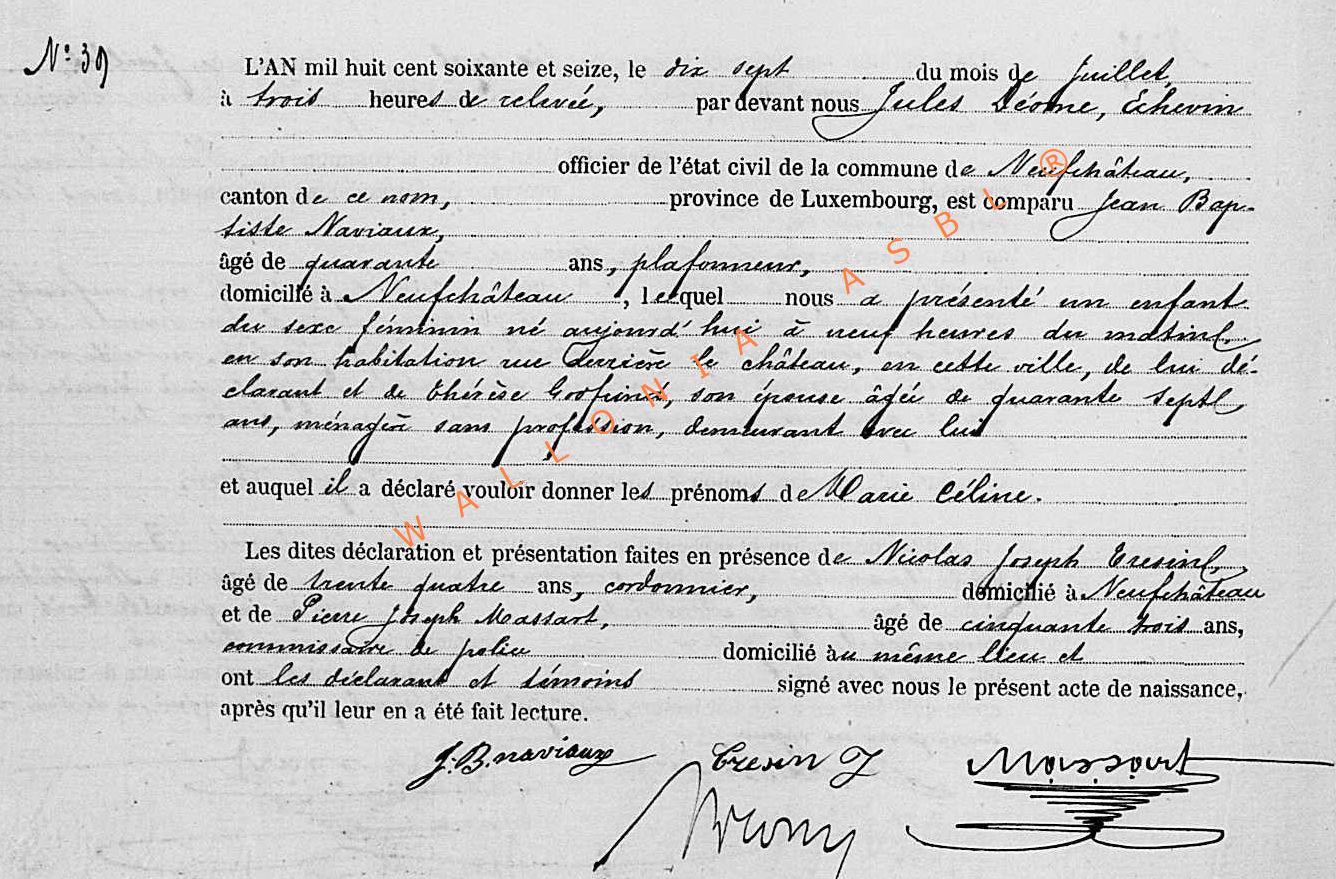 N° 39
L'AN mil huit cent soixante et seize, le dix sept du mois de juillet,
à trois heures de relevée, par devant nous Jules Déome, Echevin
officier de l'état civil de la commune de Neufchâteau,
canton de ce nom, province de Luxembourg, est comparu Jean Bap-
tiste Naviaux,
âgé de quarante ans, plafonneur,
domicilié à Neufchâteau, lequel nous a présenté un enfant
du sexe féminin né aujourd'hui à neuf heures du matin
en son habitation rue Derrière le château, en cette ville, de lui dé-
clarant et de Thérèse son épouse âgée de quarante sept
ans, ménagère sans profession, demeurant avec lui
et auquel il a déclaré vouloir donner les prénoms de Marie Céline.
Les dites déclaration et présentation faites en présence de Nicolas Joseph Tresin,
âgé de trente quatre ans, cordonnier, domicilié à Neufchâteau
et de Pierre Joseph Massart, âgé de cinquante trois ans,
commissaire de police domicilié au même lieu et
ont les déclarant et témoins signé avec nous le présent acte de naissance,
après qu'il leur en a été fait lecture.
J. B. naviaux Tresin J Massart
WALLONIA ASBL ®